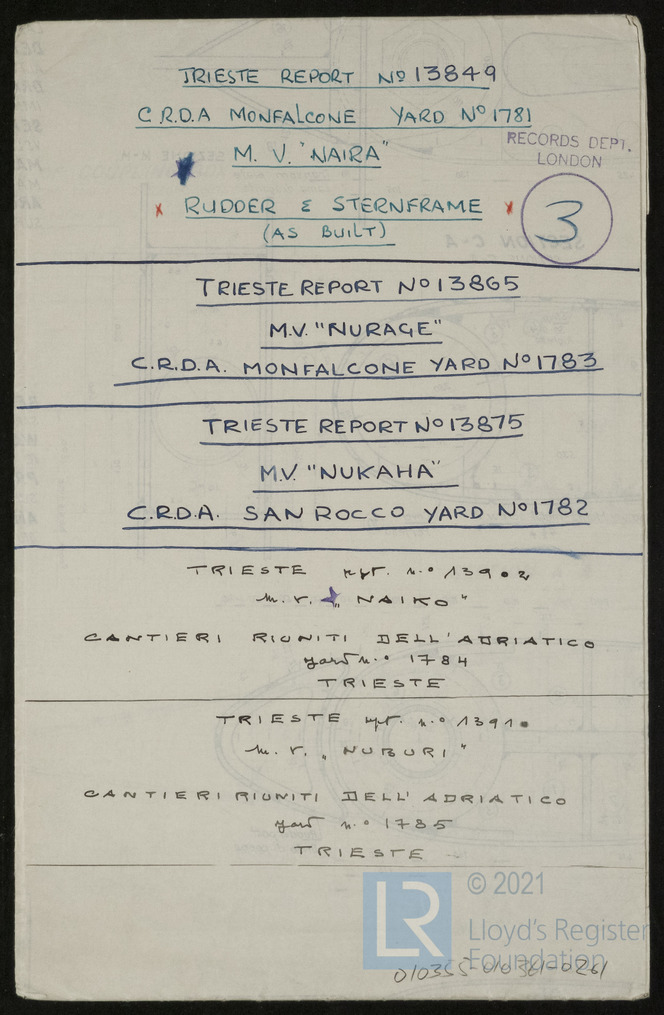 TRIESTE REPORT Nº 13849
C.R.D.A MONFALCONE YARD Nº 1781
M. V. "NAIRA"
RECORDS DEPT.
LONDON
RUDDER & STERNFRAME
(AS BUILT)
3
TRIESTE REPORT Nº 13865
M.V. "NURAGE"
C.R.D.A. MONFALCONE YARD Nº 1783
TRIESTE REPORT Nº 13875
M.V. "NUKAHA"
C.R.D.A. SAN ROCCO YARD Nº 1782
TRIESTE rpt. n.º 13902
m. v. „NAIKO"
CANTIERI RIUNITI DELL'ADRIATICO
yard n.º 1784
TRIESTE
TRIESTE rpt. n.º 13910
m. v. „NUBURI"
CANTIERI RIUNITI DELL'ADRIATICO
yard n.º 1785
TRIESTE
LR
© 2021
Lloyd's Register
Foundation